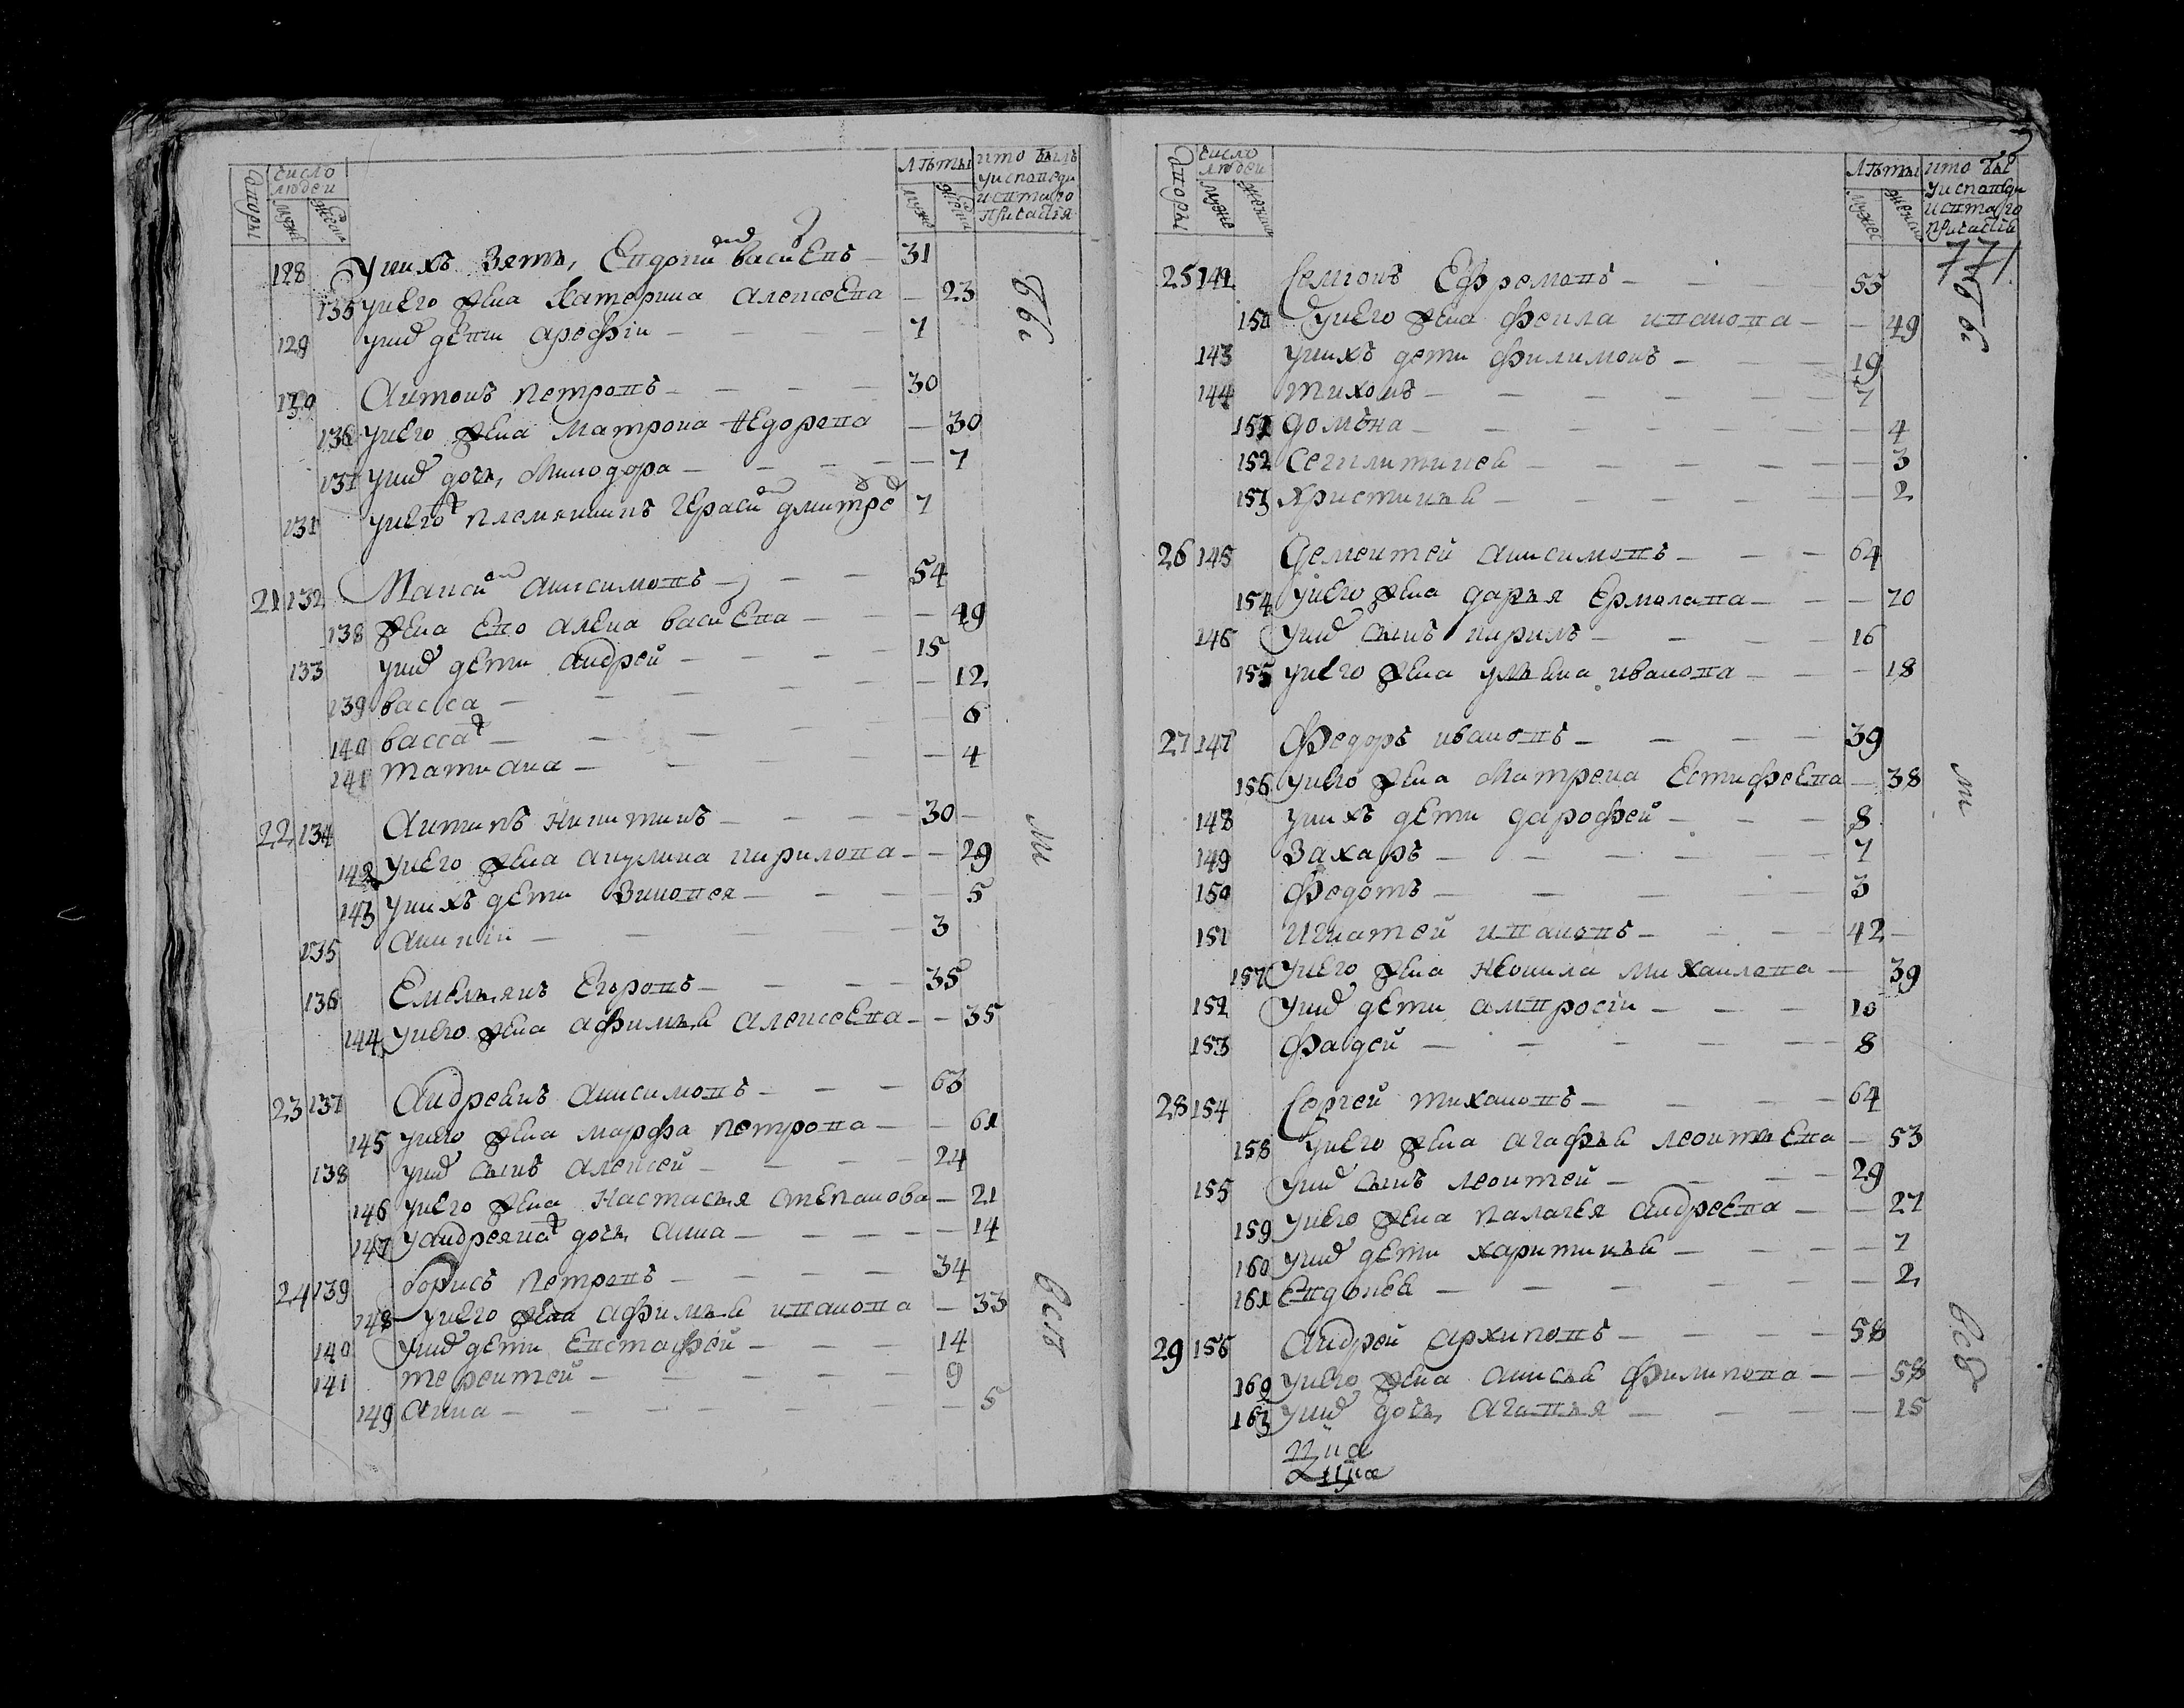 Дворы
число людей
мужс
женск
лѣты
мужс
женск
кто былъ у исповеди и святаго причастія
128 У нихъ зять, Евдокимъ васиlевъ — 31
135 у него жена Катерина алексеева — 23
129 у нихъ дети арефiи — 7
130 Антонъ петровъ — 30
136 у него жена матрона Ѳедорова — 30
137 у нихъ дочь, Минодора — 7
131 у него племянникъ Герасимъ дмитре 7
были
21 132 Максимъ анисимовъ — 54
138 жена ево алена васиева — 49
133 у нихъ дети андрей — 15
139 васса — 12
140 васса — 6
141 татиана — 4
22 134 Антипъ никитинъ — 30
142 у него жена акулина кирилова — 29
143 у нихъ дети Зиновея — 5
135 Аникiи — 3
136 Емельянъ Егоровъ — 35
144 у него жена афимья алексеева — 35
23 137 Андреянъ анисимовъ — 63
145 у него жена марфа петрова — 61
138 у нихъ сынъ алексей — 24
146 у него жена настасья степанова — 21
147 у андреяна дочь анна — 14
24 139 борисъ петровъ — 34
148 у него жена афимья иванова — 33
140 у нихъ дети Евстафей — 14
141 терентей — 9
149 анна — 5
ли
все
Дворы
число людей
мужс
женск
лѣты
мужс
женск
кто бы у исповеди и святаго причастія
771
25 142 Семионъ Ефремовъ — 55
150 у него жена феkла иванова — 49
143 у нихъ дети филимонъ — 19
144 тихонъ — 7
151 домна — 4
152 Секлитинея — 3
153 христинья — 2
26 145 Дементей анисимовъ — 64
154 у него жена дарья Ермолаева — 70
146 у нихъ сынъ кирилъ — 16
155 у него жена ульяна иванова — 18
27 147 Федоръ ивановъ — 39
156 у него жена Матрена Естифеева — 38
148 у нихъ дети дарофей — 8
149 Захаръ — 7
150 Федотъ — 3
151 Игнатей ивановъ — 42
157 у него жена неонила михаилова — 39
152 у нихъ дети амвросiи — 10
153 Фадей — 8
28 154 Сергей тихановъ — 64
158 у него жена агафья леонтьева — 53
155 у нихъ сынъ леонтей — 29
159 у него жена палагея андреева — 27
160 у нихъ дети харитинья — 7
161 Евдокея — 2
29 156 Андрей архиповъ — 58
162 у него жена анисья филипова — 58
163 у нихъ дочь агавья — 15
бы
ли
все